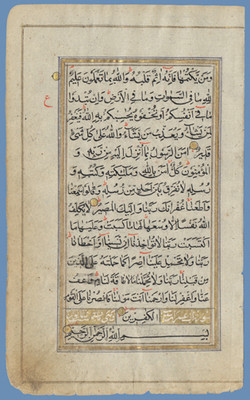 ومن يكتمها فانه اثم قلبه والله بما تعملون عليم
لله ما في السموات وما في الارض وان تبدوا
ع
ما في انفسكم او تخفوه يحاسبكم به الله فيغفر
لمن يشاء ويعذب من يشاء والله على كل شئ
قدير امن الرسول بما انزل اليه من ربه و
المؤمنون كل امن بالله وملئكته وكتبه و
رسله لا نفرق بين احد من رسله وقالوا سمعنا
واطعنا غفرانك ربنا واليك المصير لا يكلف
الله نفسا الا وسعها لها ما كسبت وعليها ما
اكتسبت ربنا لا تؤاخذنا ان نسينا او اخطأنا
ربنا ولا تحمل علينا اصرا كما حملته على الذين
من قبلنا ربنا ولا تحملنا ما لا طاقة لنا به واعف
عنا واغفر لنا وارحمنا انت مولنا فانصرنا على القوم
الكفرين
بسم الله الرحمن الرحيم